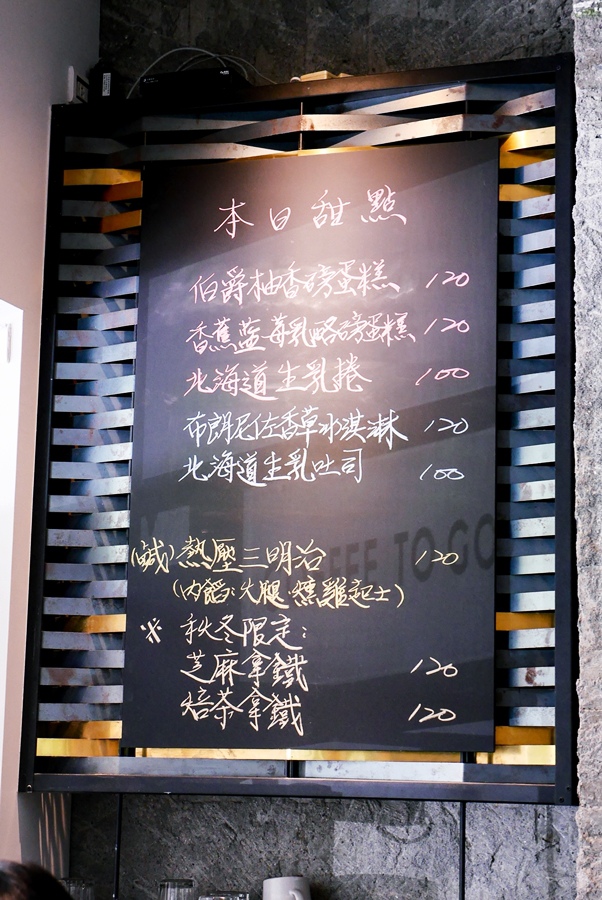 本日甜點
伯爵柚香磅蛋糕 120
香蕉蓝莓乳酪磅蛋糕 120
北海道生乳捲 100
布朗尼佐香草冰淇淋 120
北海道生乳吐司 100
(鹹)熱壓三明治 120
(内餡:火腿.燻雞起士)
※ 秋冬限定:
芝麻拿鐵 120
焙茶拿鐵 120
COFFEE TO GO